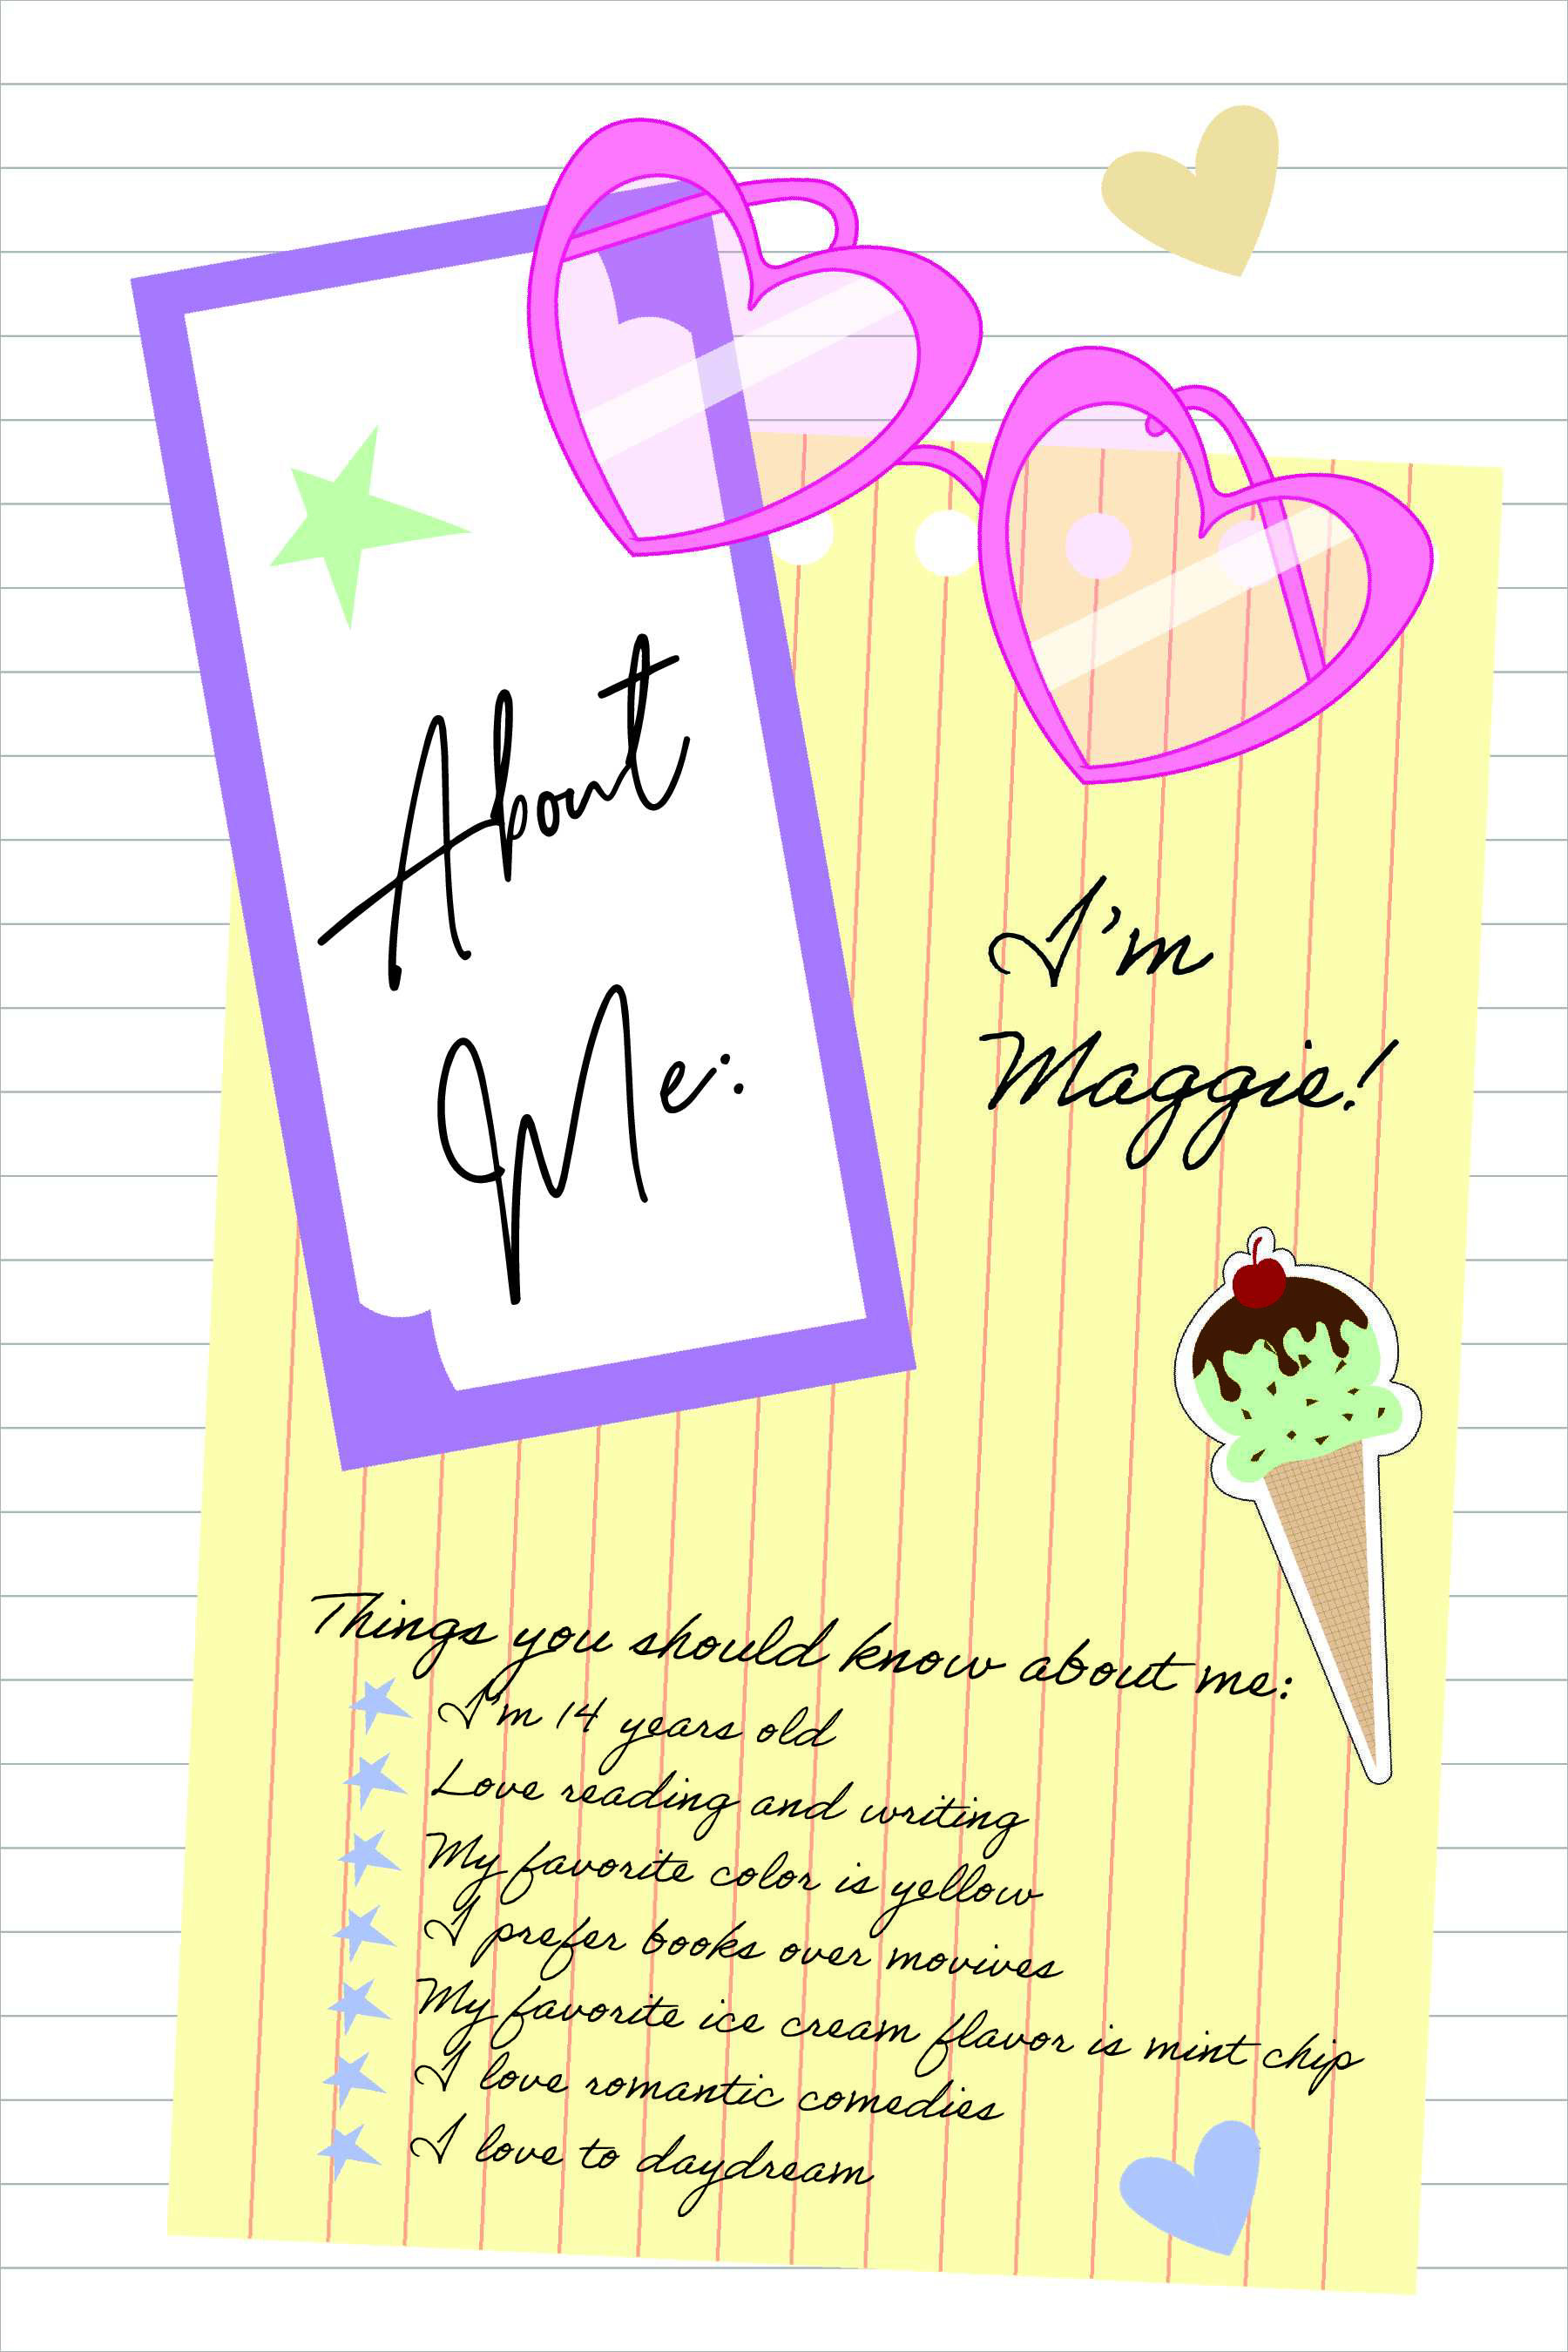 About
Me:
I'm
Maggie!
Things you should know about me:
I'm 14 years old
Love reading and writing
My favorite color is yellow
I prefer books over movives
My favorite ice cream flavor is mint chip
I love romantic comedies
I love to daydream